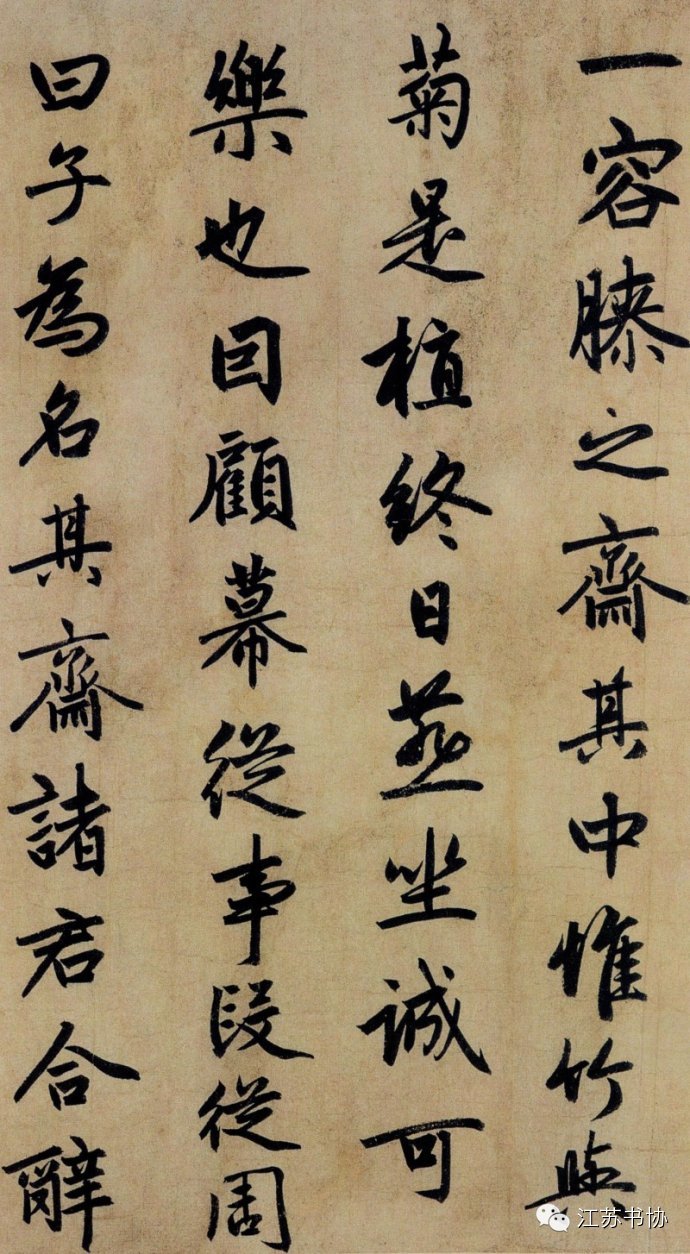 一容膝之齋其中惟竹與
菊是植終日燕坐誠可
樂也回顧幕從事段從周
曰子為名其齋諸君合辭
江苏书协